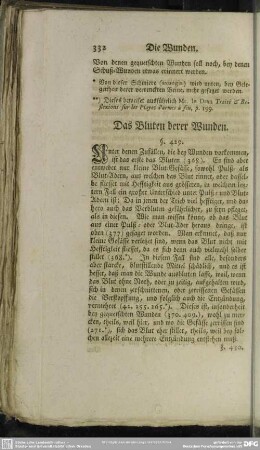 332 Die Wunden.
Von denen gequetschten Wunden soll noch, bey denen
Schuß-Wunden etwas erinnert werden.
* Von dieser Schmiere wird unten, bey Gele-
genheit derer verbrannten Beine, mehr gesaget werden.
** Dieses beweiset ausführlich Mr. le Dran Traité & Re-
flexions sur les Playes d'armes à feu, p. 199.
Das Bluten derer Wunden.
§. 419.
Unter denen Zufällen, die bey Wunden vorkommen,
ist das erste das Bluten (368.). Es sind aber
entweder nur kleine Blut-Gefäße, sowohl Puls- als
Blut-Adern, aus welchen das Blut rinnet, oder dasselbe
fliesset mit Heftigkeit aus grössern, in welchem letz-
tern Fall ein grosser Unterschied unter Puls- und Blut-
Adern ist: Da in jenen der Trieb viel heftiger, und da-
hero auch das Verbluten gefährlicher, zu seyn pfleget,
als in diesen. Wie man wissen könne, ob das Blut
aus einer Puls- oder Blut-Ader heraus dringe, ist
oben (377) gesaget worden. Man erkennet, daß nur
kleine Gefäße verletzet sind, wenn das Blut nicht mit
Heftigkeit fliesset, da es sich denn auch mehrentheils selber
stillet (368.*). In diesem Fall sind alle, besonders
aber starcke, blutstillende Mittel schädlich, und es ist
besser, daß man die Wunde ausbluten lasse, weil, wenn
das Blut ohne Noth, oder zu zeitig, aufgehalten wird,
sich in denen zerschnittenen, oder zerrissenen Gefässen
die Verstopffung, und folglich auch die Entzündung,
vermehret (42. 255. 265.*). Dieses ist, insonderheit
bey gequetschten Wunden (370. 409.), wohl zu mer-
cken, theils, weil hier, und wo die Gefäße zerrissen sind
(271.*), sich das Blut eher stillet, theils, weil bey sol-
chen allezeit eine mehrere Entzündung entstehen muß.
§. 420.